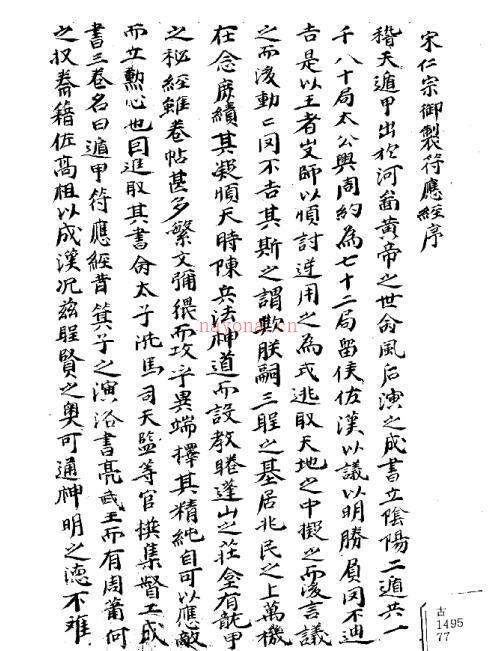 宋仁宗御製符應經序
稽夫遁甲出於河啚黄帝之世命風后演之成書立陰陽二遁共一
千八十局太公與周約為七十二局留侯佐漢以議以明勝負罔不迪
吉是以王者𠬧師以順討逆用之為式逃取天地之中擬之而後言議
之而後動亡罔不吉其斯之謂歟朕嗣三聖之基居兆民之上萬機
在念庶績其凝順天時陳兵法神道而設教睠蓬山之莊奩有龍甲
之秘經雖卷帖甚多繁文弥猥而攻乎異端擇其精純自可以應敵
而立勲也因進取其書命太子洗馬司天監等官撰集督工成
書三卷名曰遁甲符應經昔箕子之演洛書亮武王而有周莆何
之収秦籍佐髙祖以成漢况兹聖賢之奥可通神明之德不难
nayona.cn
古
1495
77